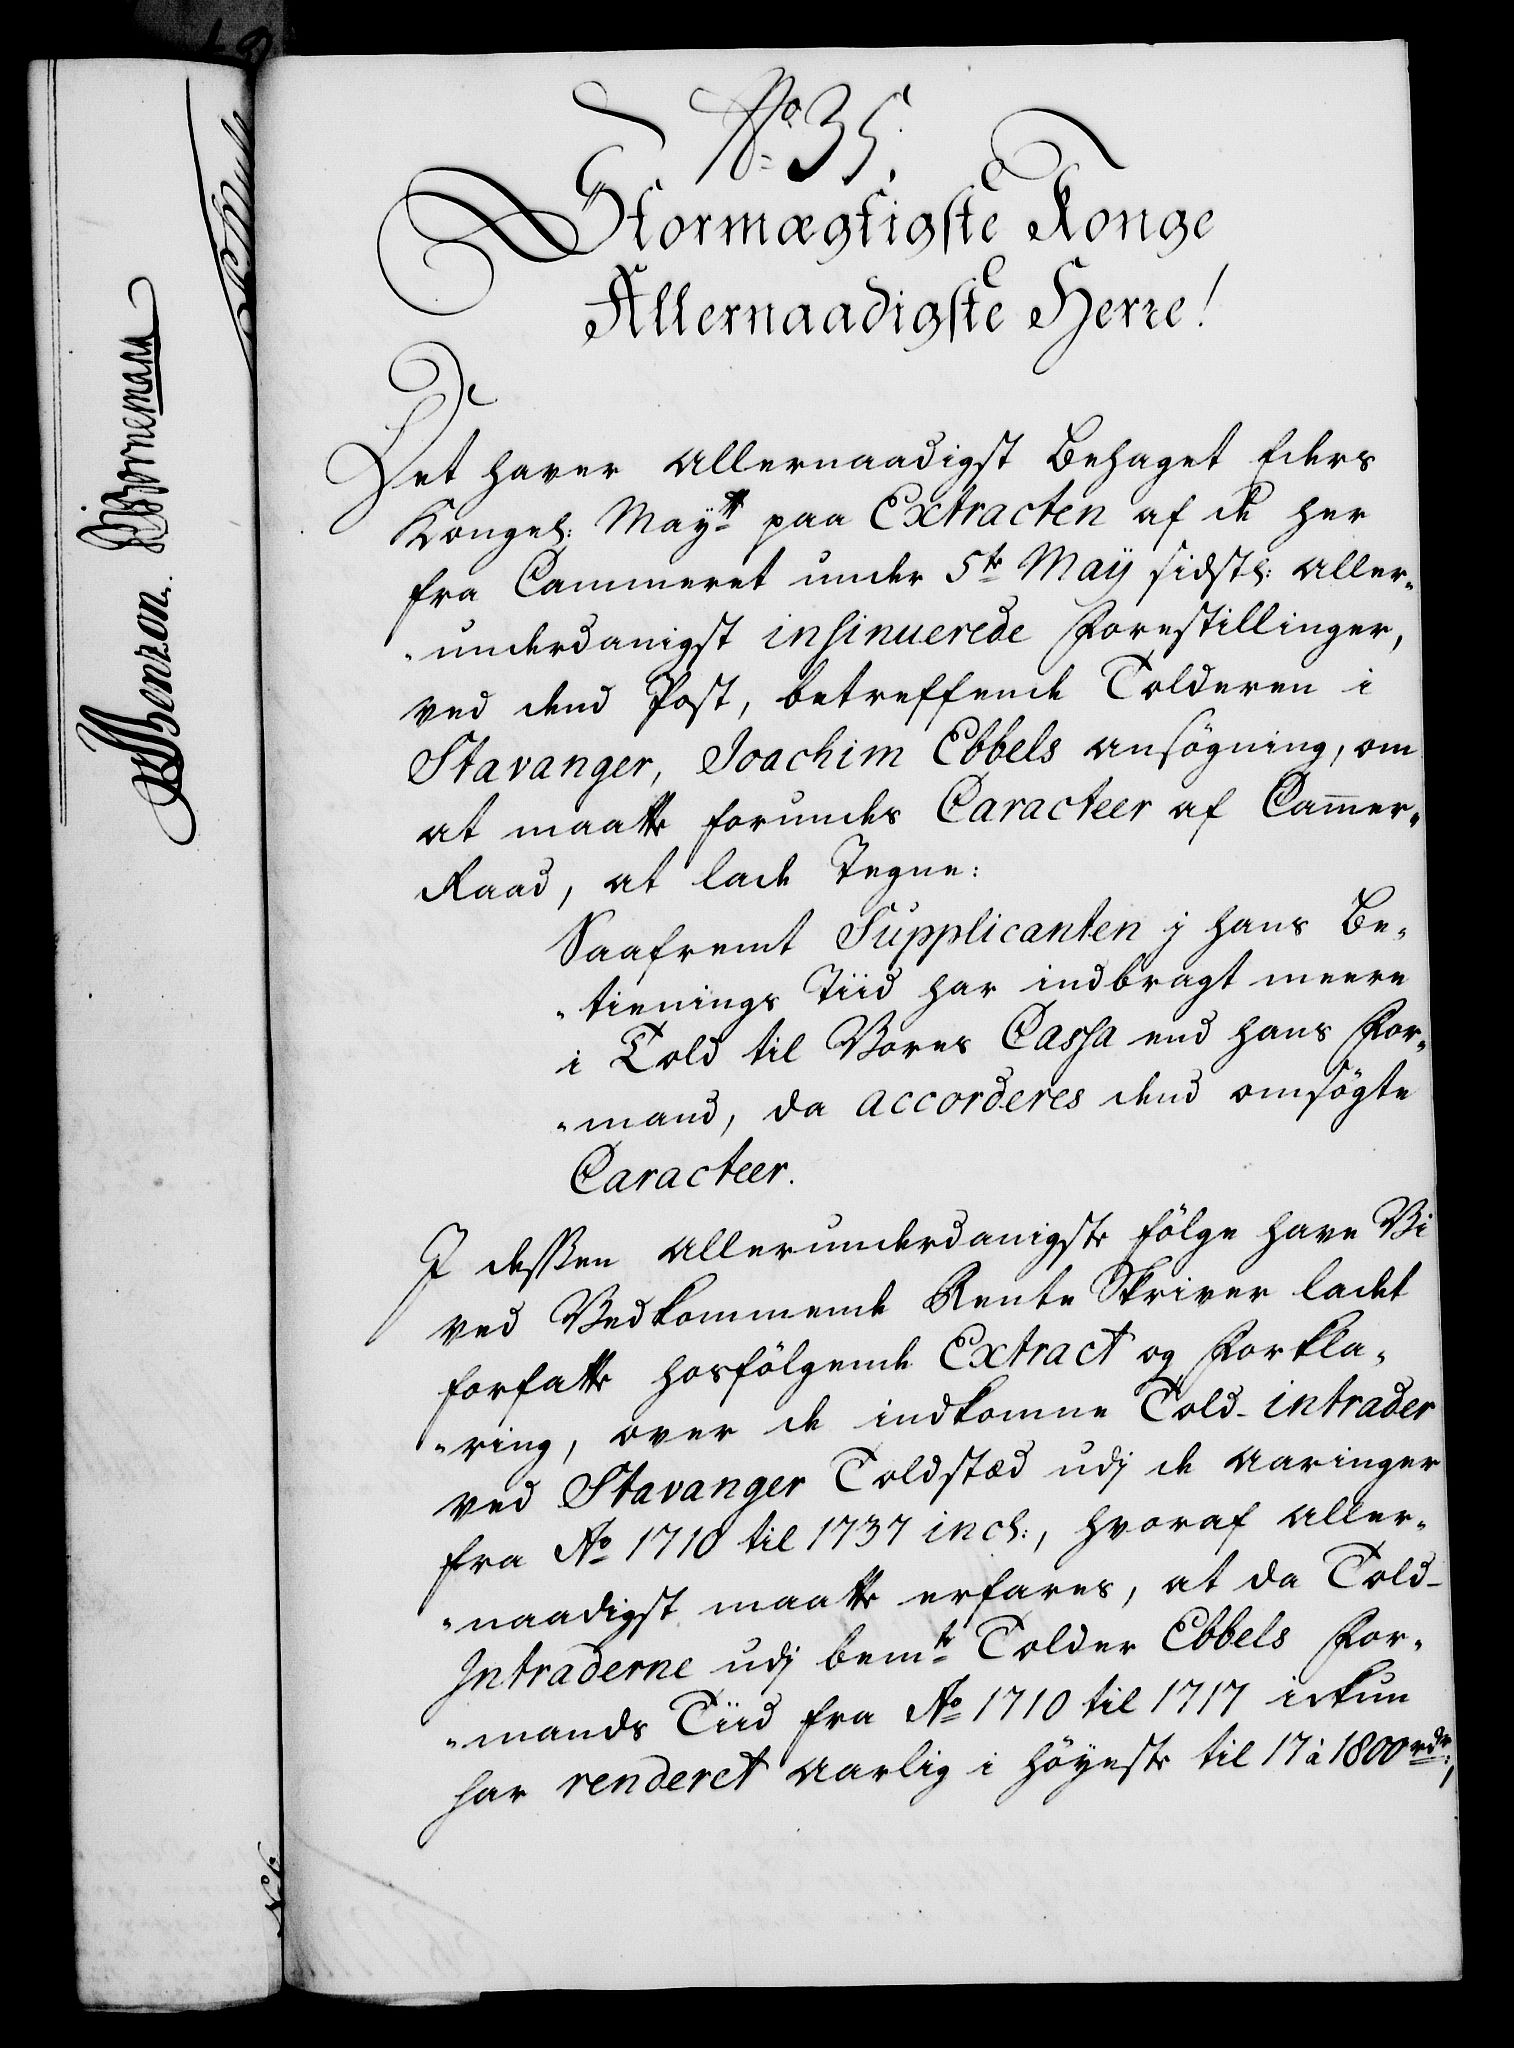 No. 35.
Stormægtigste Konge
Allernaadigste Herre!
Det haver allernaadigst behaget Eders
Kongel: Mayts paa Extracten af de her
fra Cammeret under 5te Maÿ sidstl: aller-
-underdanigst insinuerede Forestillinger,
ved dend Post, betreffende Tolderen i
Stavanger, Joachim Ebbels ansøgning, om
at maatte forundes Caracteer af Cam̅er-
Raad, at lade Tegne:
Saafremt Supplicanten j hans Be-
-tienings Tiid har indbragt meere
i Told til Vores Cassa end hans For-
-mand, da accorderes dend omsögte
Caracteer.
I dessen allerunderdanigste fölge have Vi
ved Vedkommende Rente Skriver ladet
forfatte hosfölgende Extract og Forkla-
-ring, over de indkomne Told-intrader
ved Stavanger Toldstæd udj de Aaringer
fra Ao 1710 til 1737 incl:, hvoraf aller-
-naadigst maatte erfares, at da Told-
Intraderne udj bemte Tolder Ebbels For-
-mands Tiid fra Ao 1710 til 1717 ickun
har renderet aarlig i höyeste til 17 à 1800 rdr:,
Benzon. Bornemann